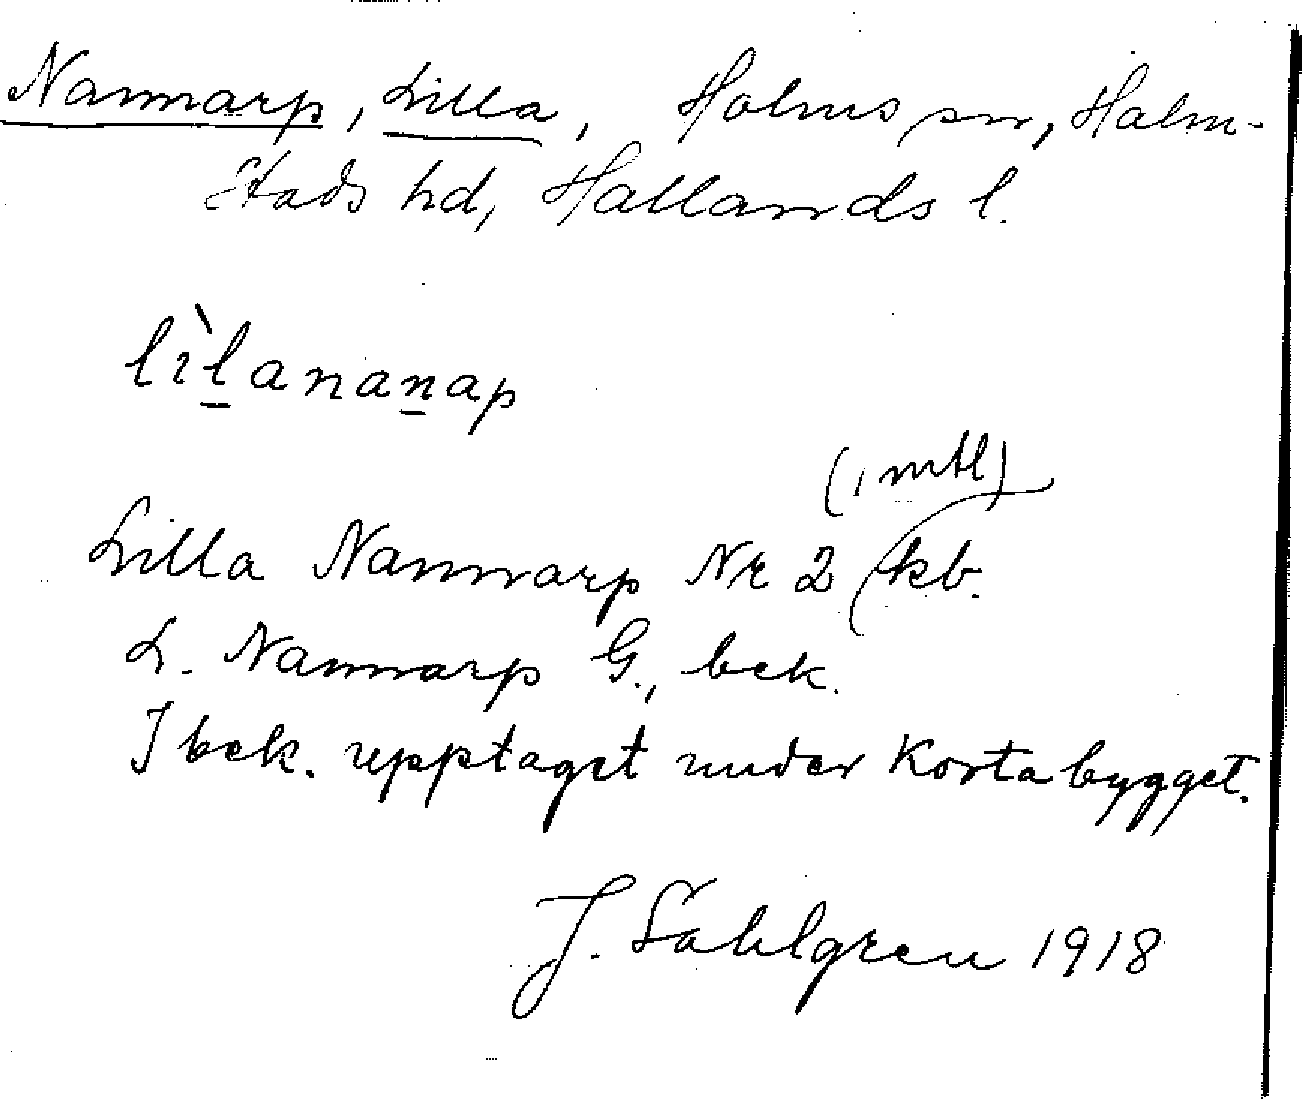 Nannarp, Lilla, Holms sn, Halm-
stads hd, Hallands l.
lìl̲anan̲ap
(1 mtl)
Lilla Nannarp Nr 2 kb.
L. Nannarp G., bek.
I bek. upptaget under Kortabygget.
J. Sahlgren 1918